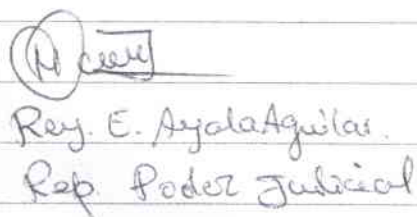 Rey. E. Ayala Aguilar.
Rep. Poder Judicial